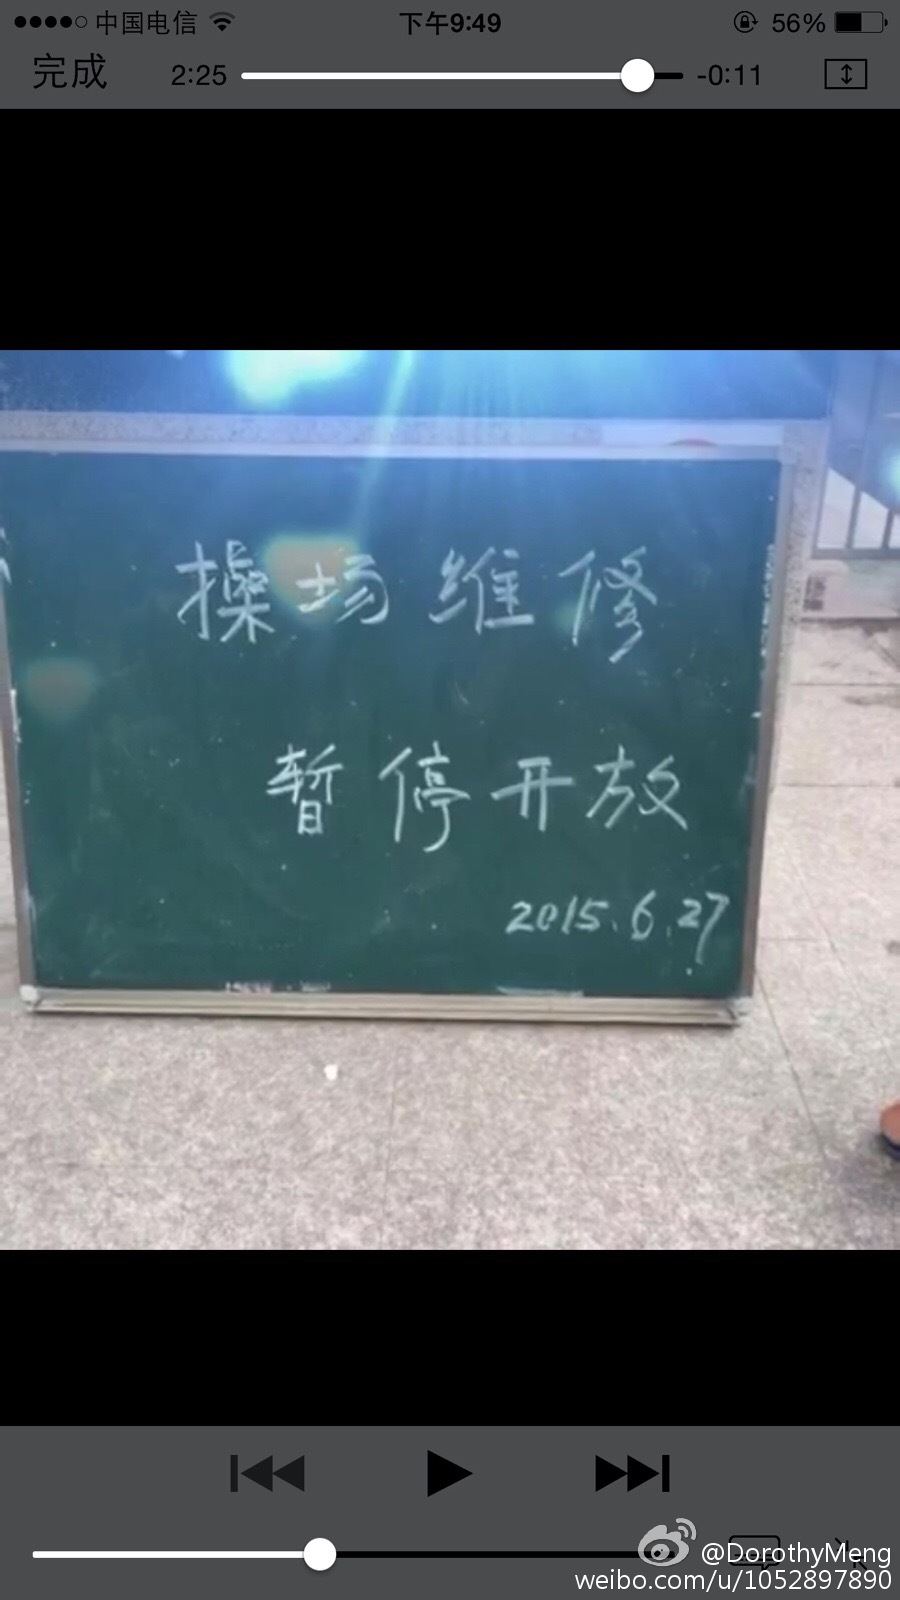 中国电信 下午9:49 56%
完成 2:25 -0:11
操场维修
暂停开放
2015.6.27
@DorothyMeng
weibo.com/u/1052897890